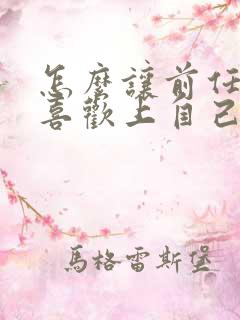 怎麼讓前任
喜歡上自己
馬格雷斯堡